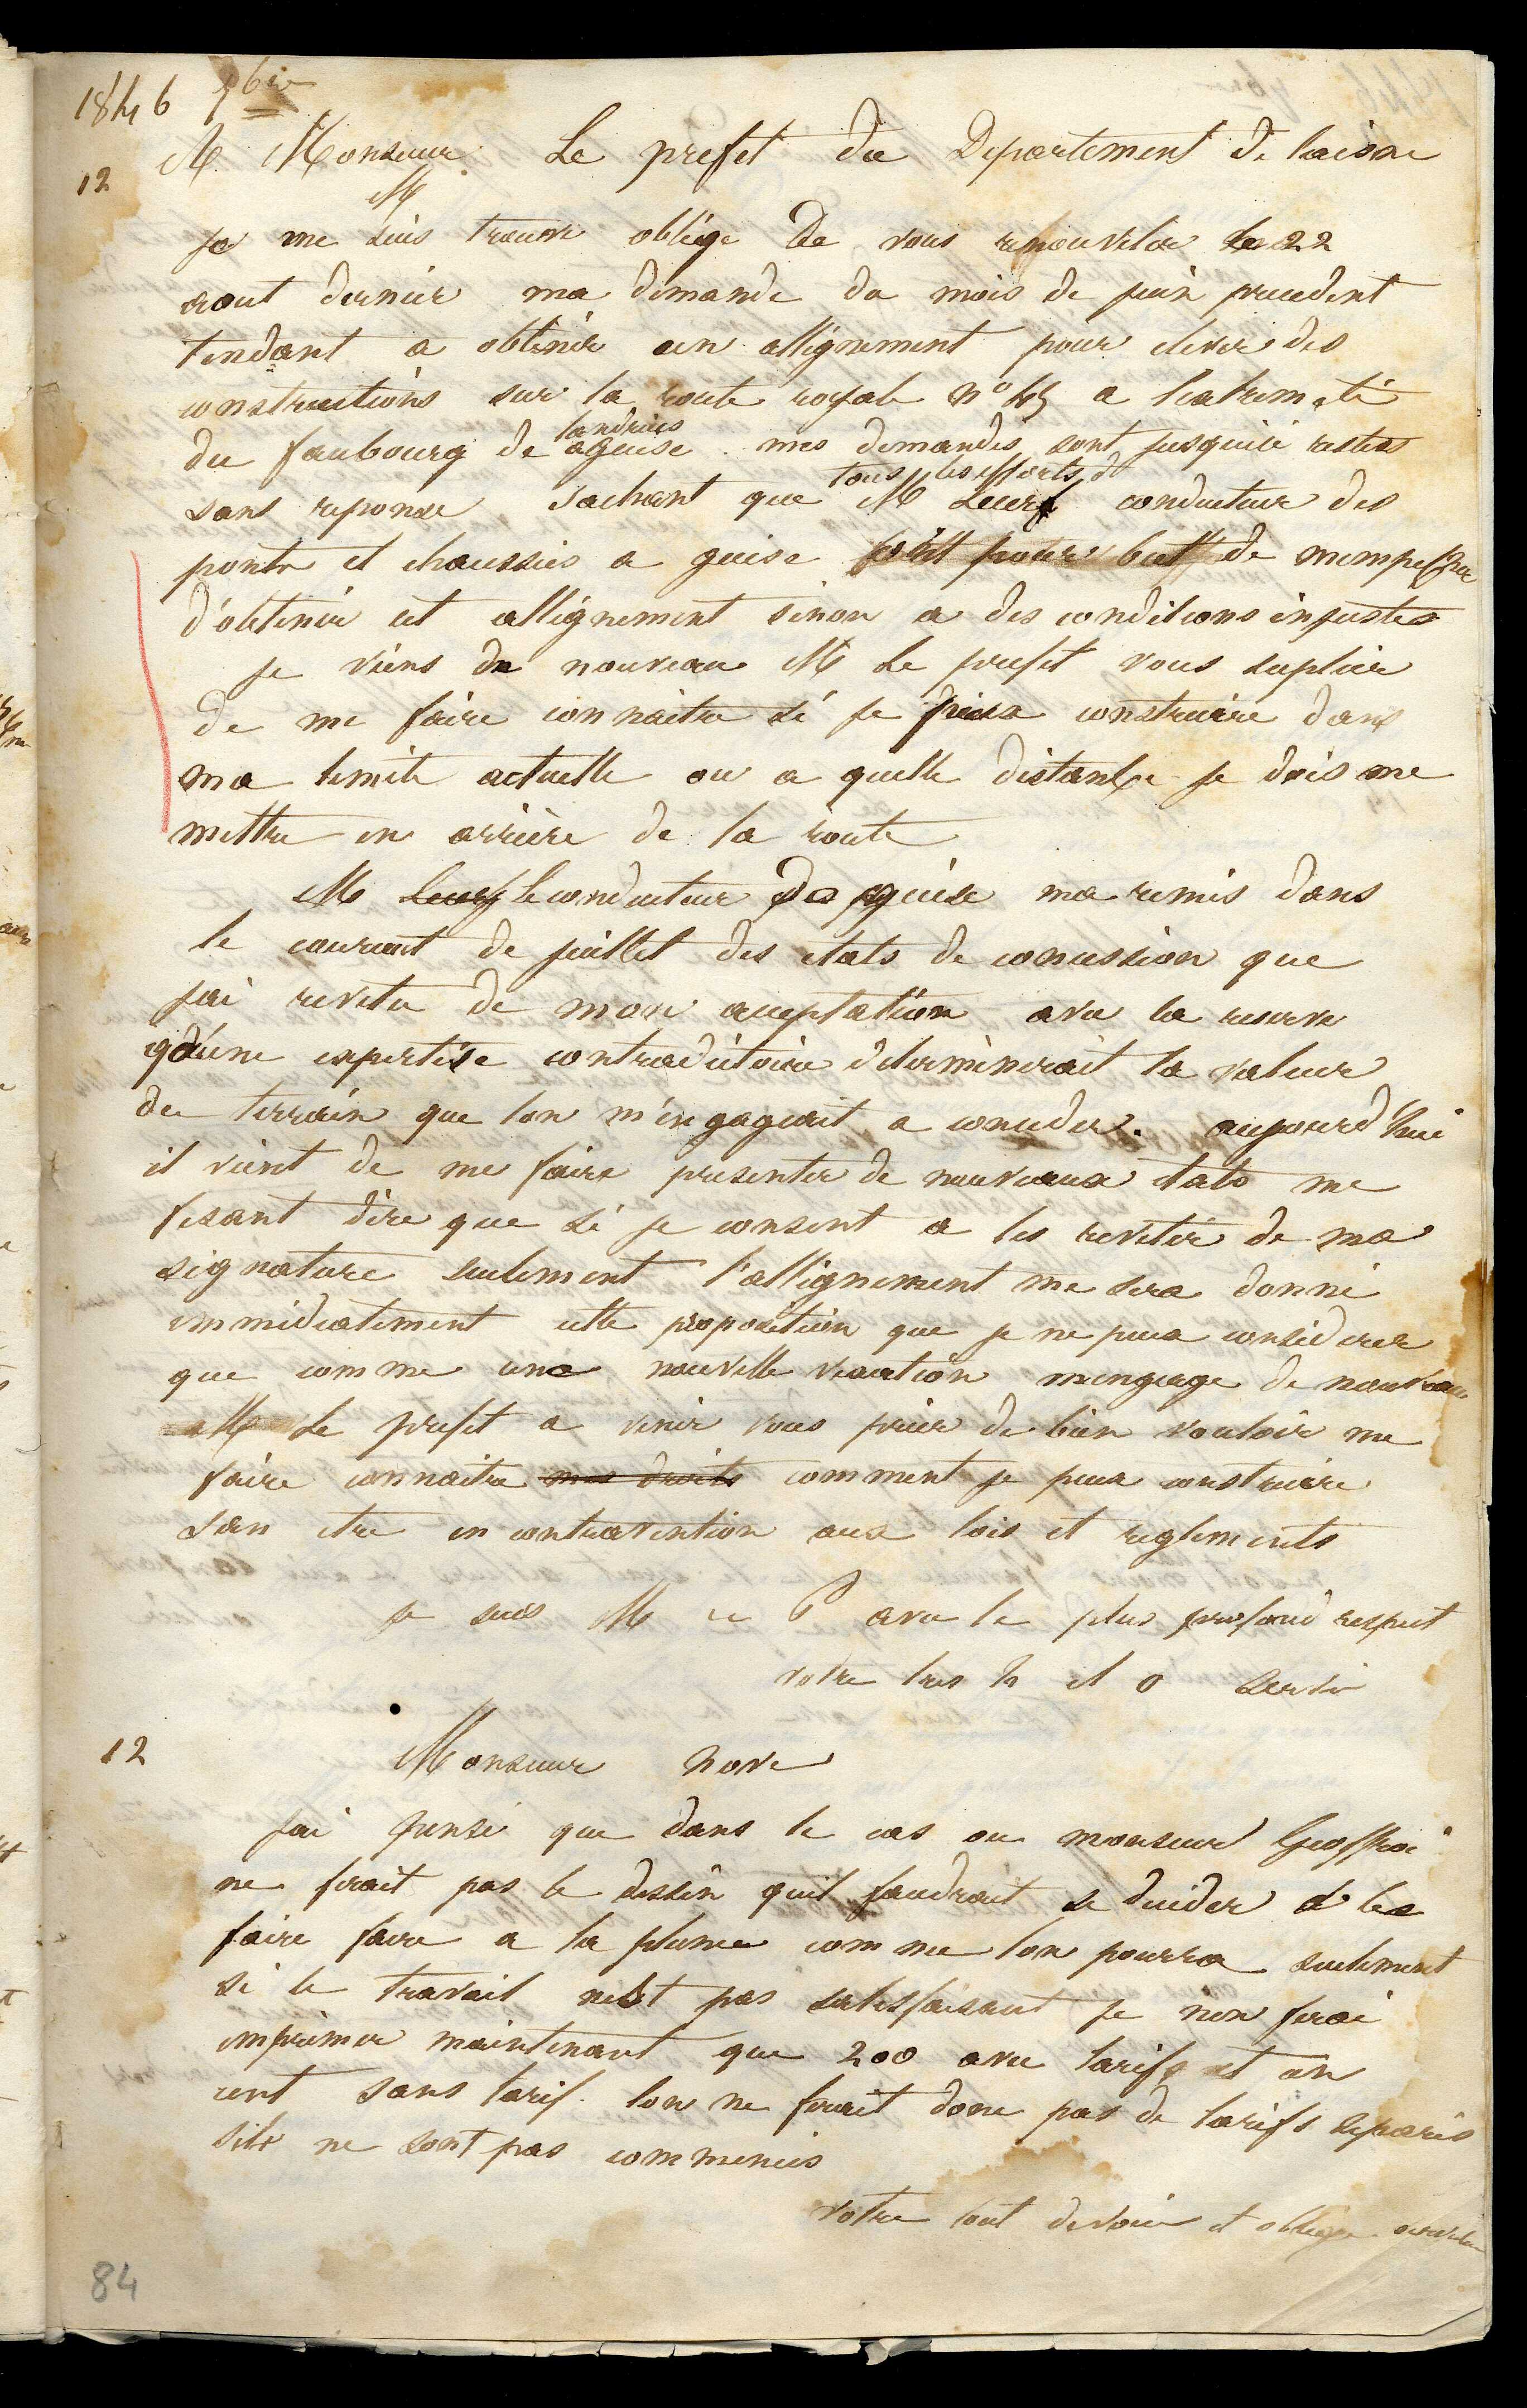 1846 9bre
12 M. Monsieur Le prefet du Departement de laisne
M
je me suis trouve oblige de vous renouveler le 22
aout dernier ma demande du mois de juin precedent
tendant a obtenir un allignement pour elever des
constructions sur la route royale n° 45 a lextremité
du faubourg de landrecies a guise . mes demandes sont jusquici restees
sans reponse sachant que tous les efforts de M Leuref conducteur des
ponts et chaussées a guise pour but de mempecher
d'obtenir cet allignement sinon a des conditions injustes
je viens de nouveau M Le prefet vous suplier
de me faire connaitre si je puis construire dans
ma limite actuelle ou a quelle distance je dois me
mettre en arrière de la route
M le conducteur de guise ma remis dans
le courant de juillet des etats de concession que
jai revetu de mon acceptation avec la reserve
qu'une expertise contradictoire determinerait la valeur
du terrain que lon m'engageait a conceder. aujourd'hui
il vient de me faire presenter de nouveaux etats me
fesant dire que si je consent a les revetir de ma
signature seulement l'allignement me sera donné
immediatement cette proposition que je ne peux considerer
que comme une nouvelle vexation mengage de nouveau
M Le prefet a venir vous prier de bien vouloir me
faire connaitre mes droits comment je peux construire
san etre en contravention aux lois et reglements
je suis M le P avec le plus profond respect
votre tres h et o servir
12 Monsieur nove
jai pensé que dans le cas ou monsieur Geoffroi
ne ferait pas le dessin quil faudrait se decider a le
faire faire a la plume comme lon pourra seulement
si le travail nest pas satisfaisant je nen ferai
imprimer maintenant que 200 avec tarifs et un
cent sans tarif. lon ne ferait donc pas de tarifs separés
sils ne sont pas commencés
votre tout devoué et obligé
84